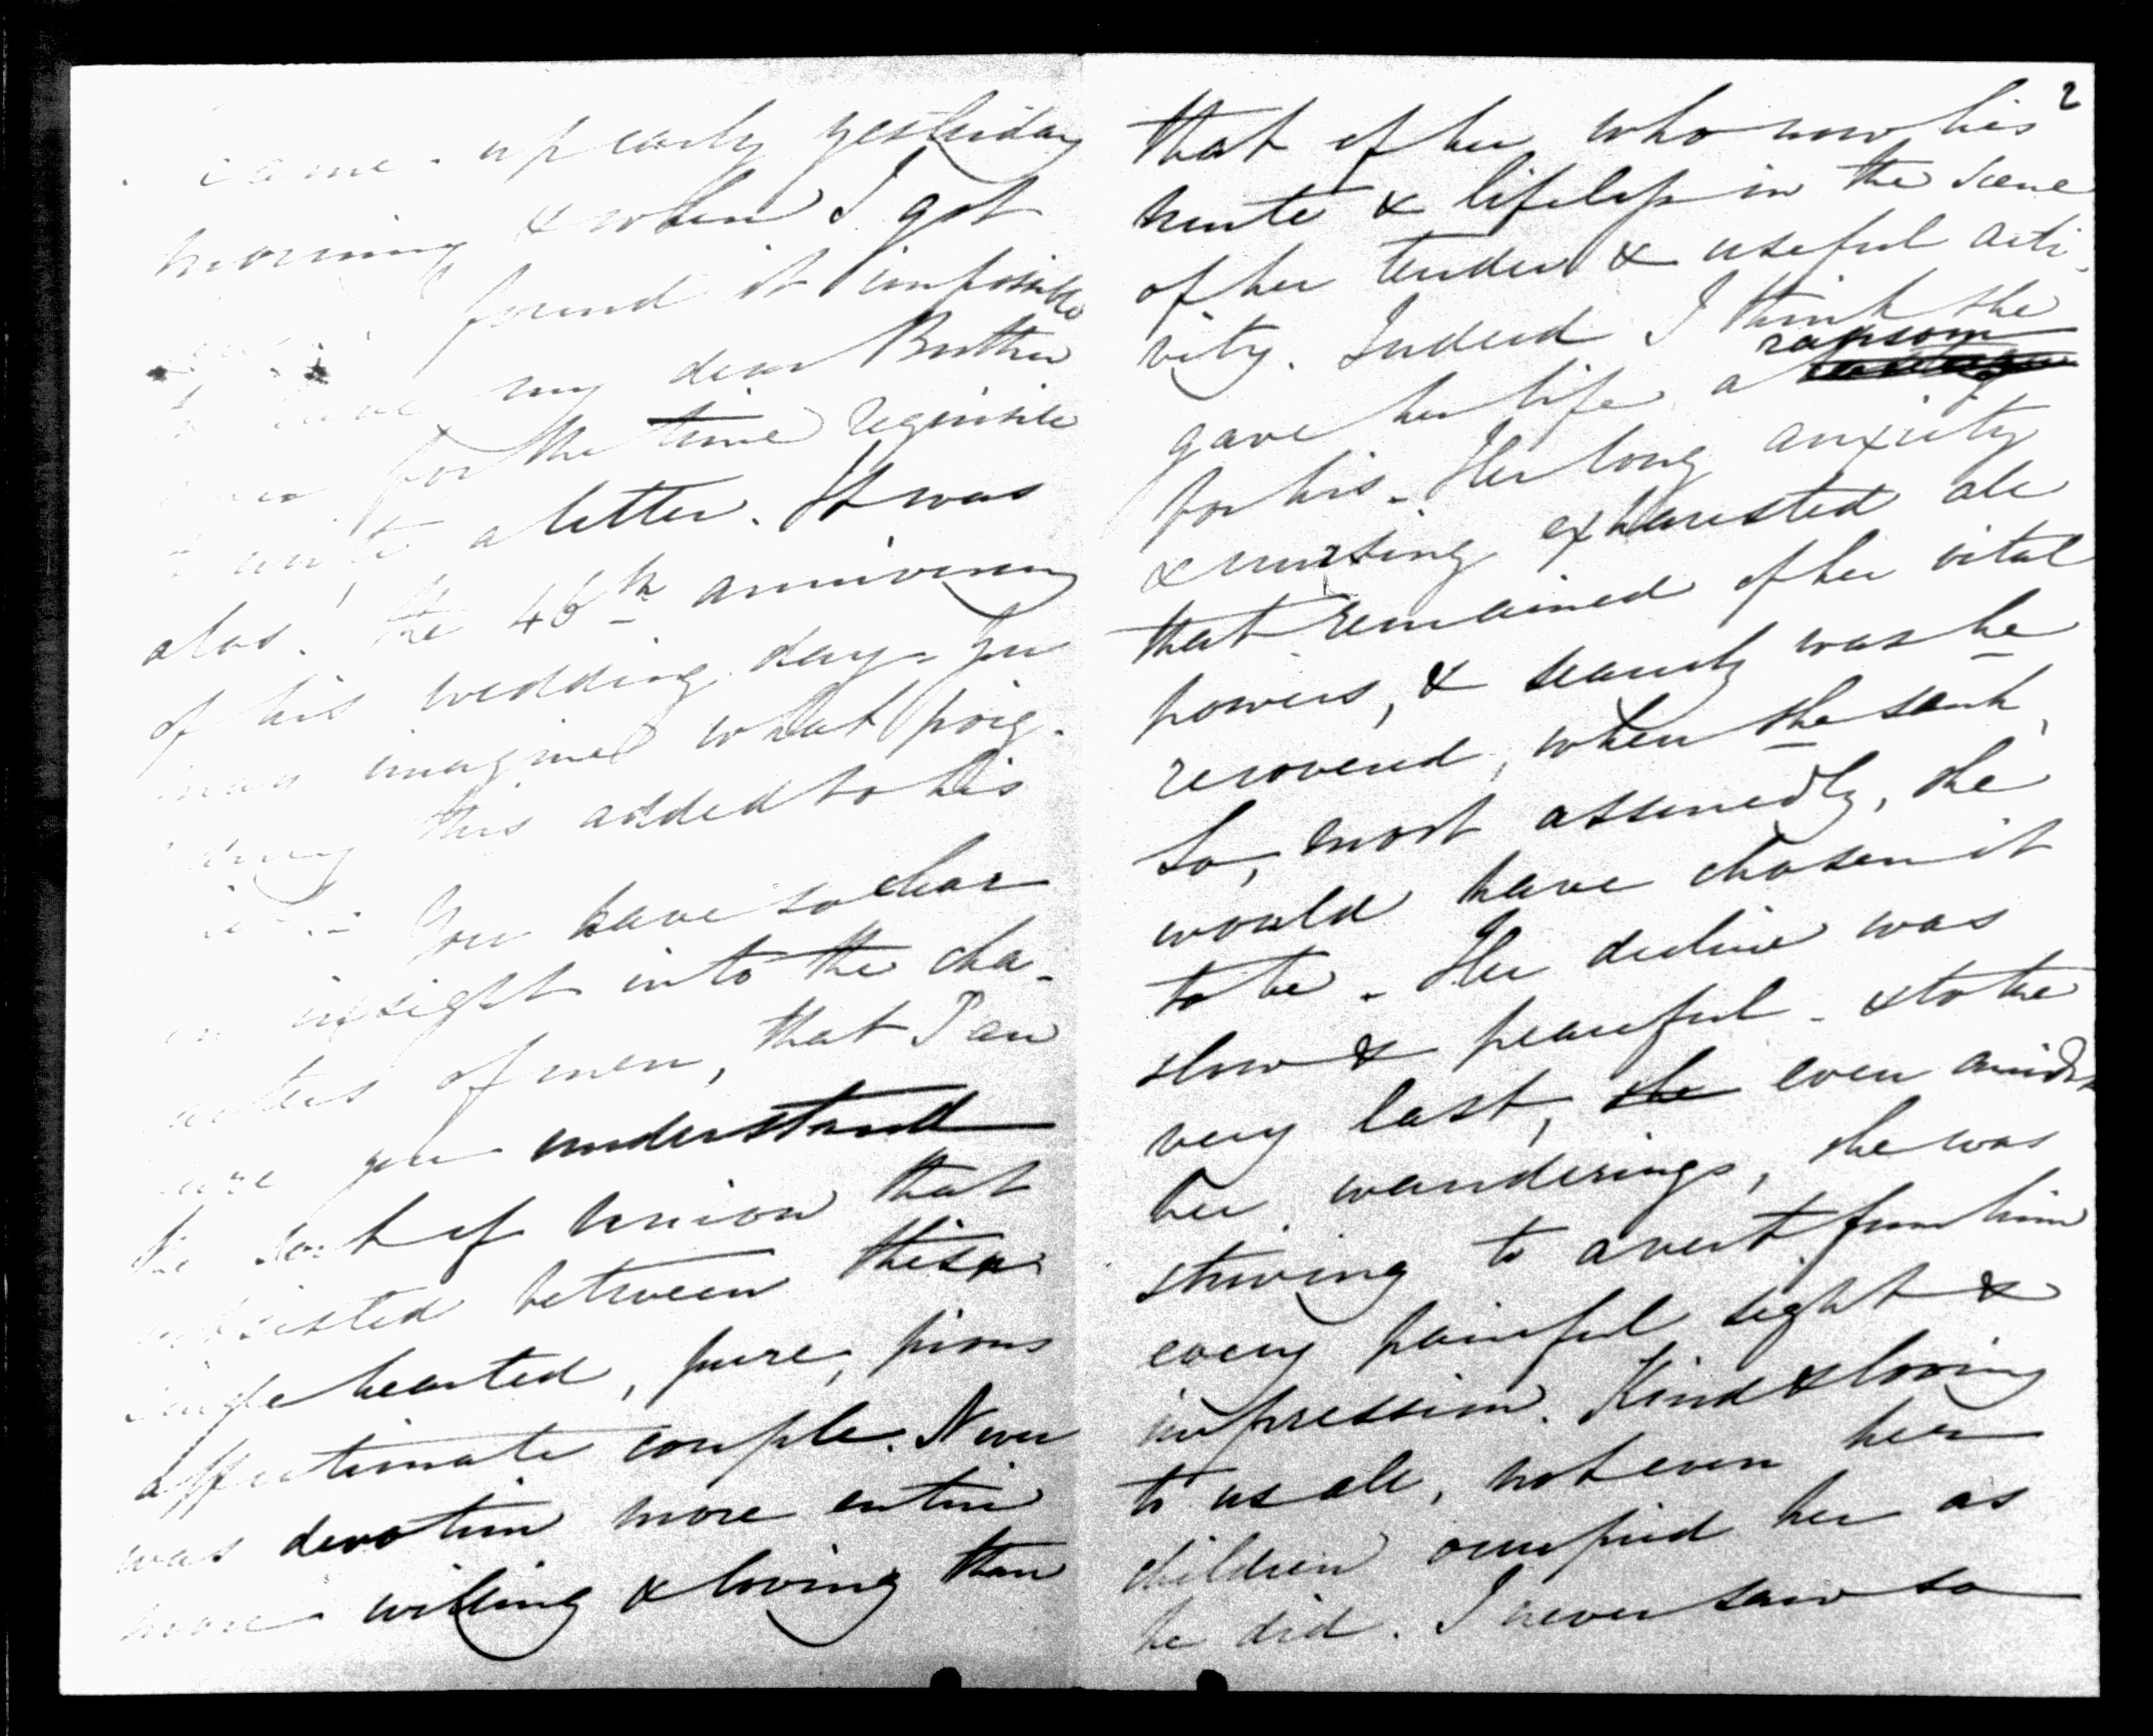 came up early yesterday
morning & when I got
found it impossible
to leave my dear Brother
for the time requisite
to write a letter. It was
alas! the 46th anniversary
of his wedding day. You
may imagine what poig-
nancy this added to his
You have so clear
an insight into the cha-
racters of men, that I am
sure you understand
the sort of union that
subsisted between this
single hearted, pure, pious
affectionate couple. Never
was devotion more entire
more willing & loving than
2
that of her who now lies
mute & lifeless in the scene
of her tender & useful acti-
vity. Indeed I think she
ransom
gave her life a
for his. Her long anxiety
& nursing exhausted all
that remained of her vital
powers, & scarcely was he
recovered, when she sank,
So, most assuredly, she
would have chosen it
to be. Her decline was
slow & peaceful - & to the
very last, she even amidst
her wanderings, she was
striving to avert from him
every painful sight &
impression. Kind & loving
to us all, not even her
children occupied her as
he did. I never saw so